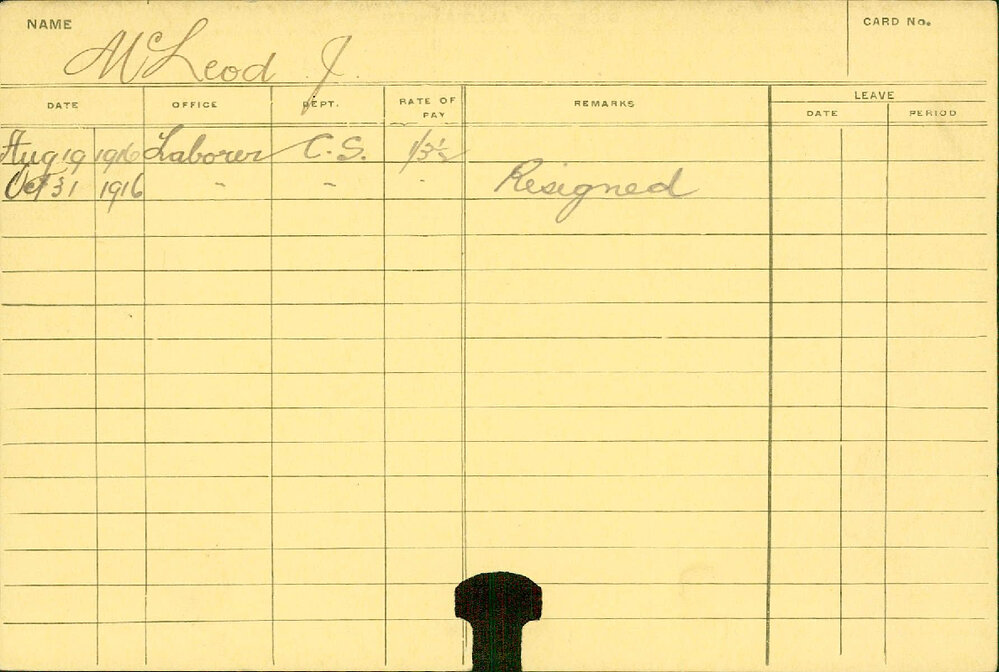 NAME
CARD No.
McLeod J.
DATE OFFICE DEPT. RATE OF PAY REMARKS LEAVE
DATE PERIOD
Aug 19 1916 Laborer C.S.
Oct 31 1916 " " " Resigned